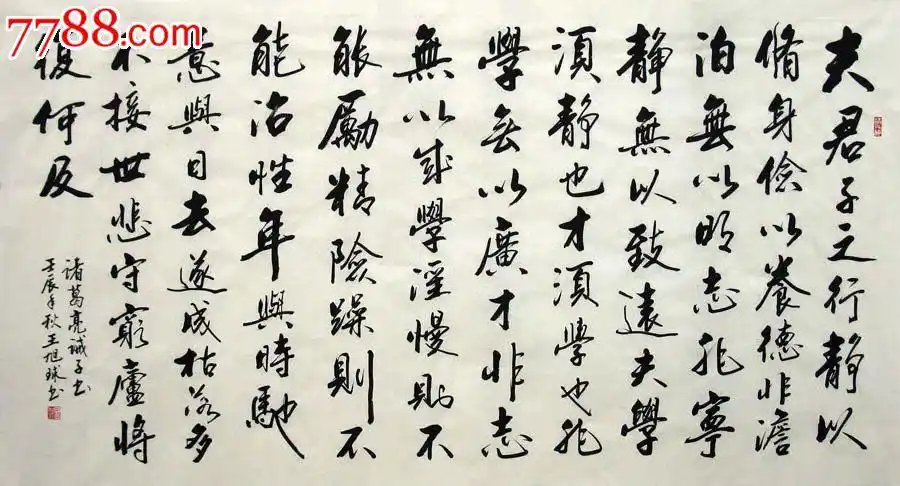 7788.com
夫君子之行靜以
脩身儉以養德非澹
泊無以明志非寧
靜無以致遠夫學
須靜也才須學也非
學無以廣才非志
無以成學淫慢則不
能勵精險躁則不
能治性年與時馳
意與日去遂成枯落多
不接世悲守窮廬將
復何及
諸葛亮誡子书
壬辰年秋王旭球书